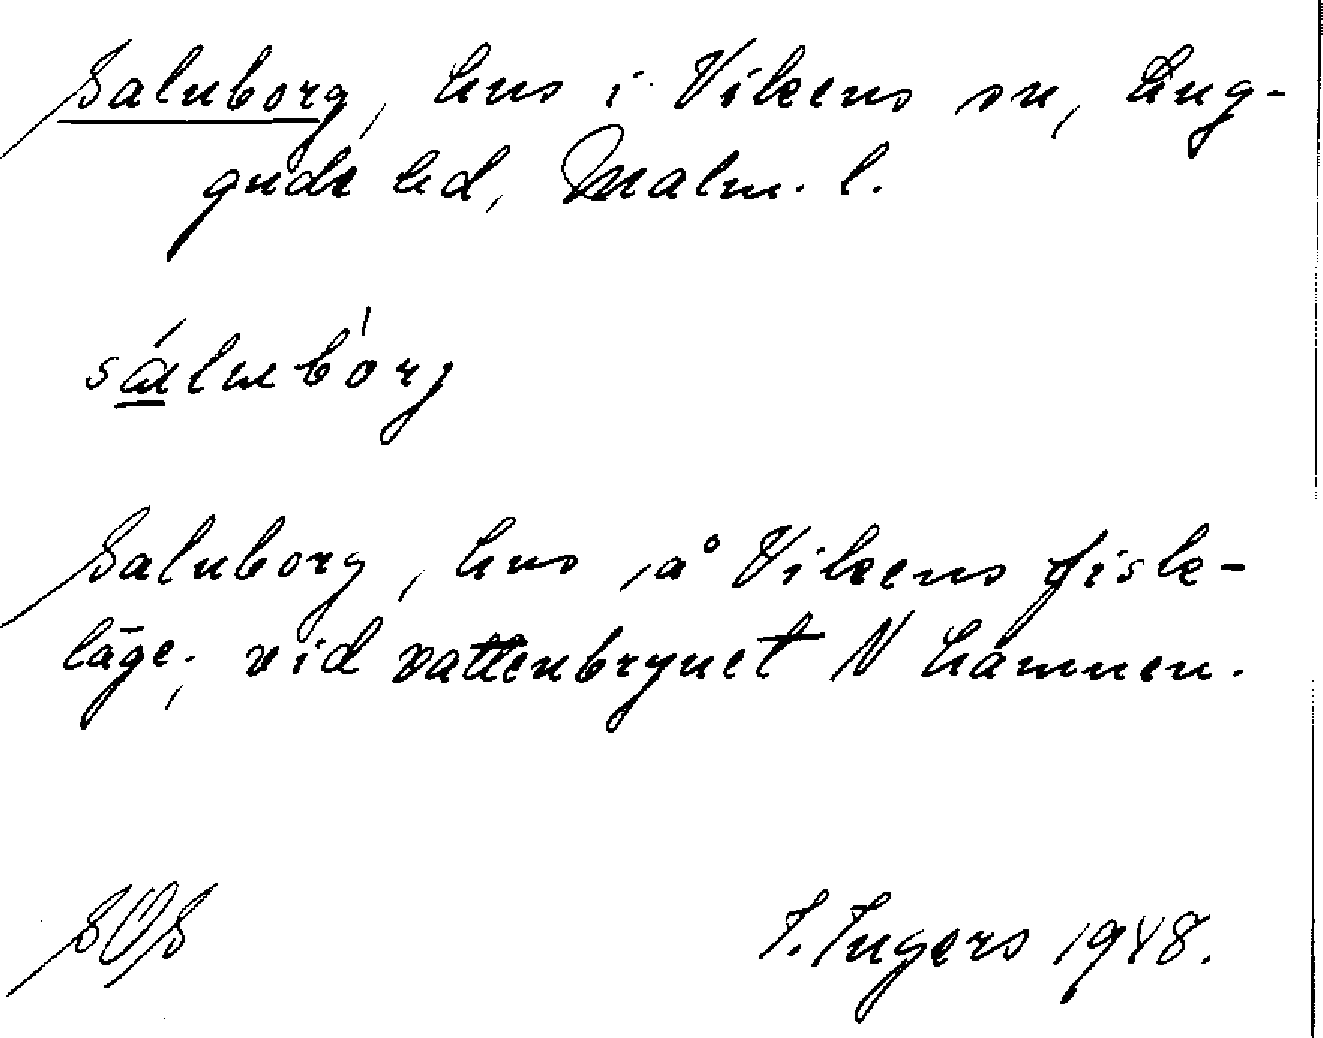 Saluborg, hus i Vikens sn, Lug-
gude hd, Malm. l.
sálubòrj
Saluborg, hus å Vikens fisk-
läge, vid vattenbrynet N hamnen.
SOS I. Ingers 1948.